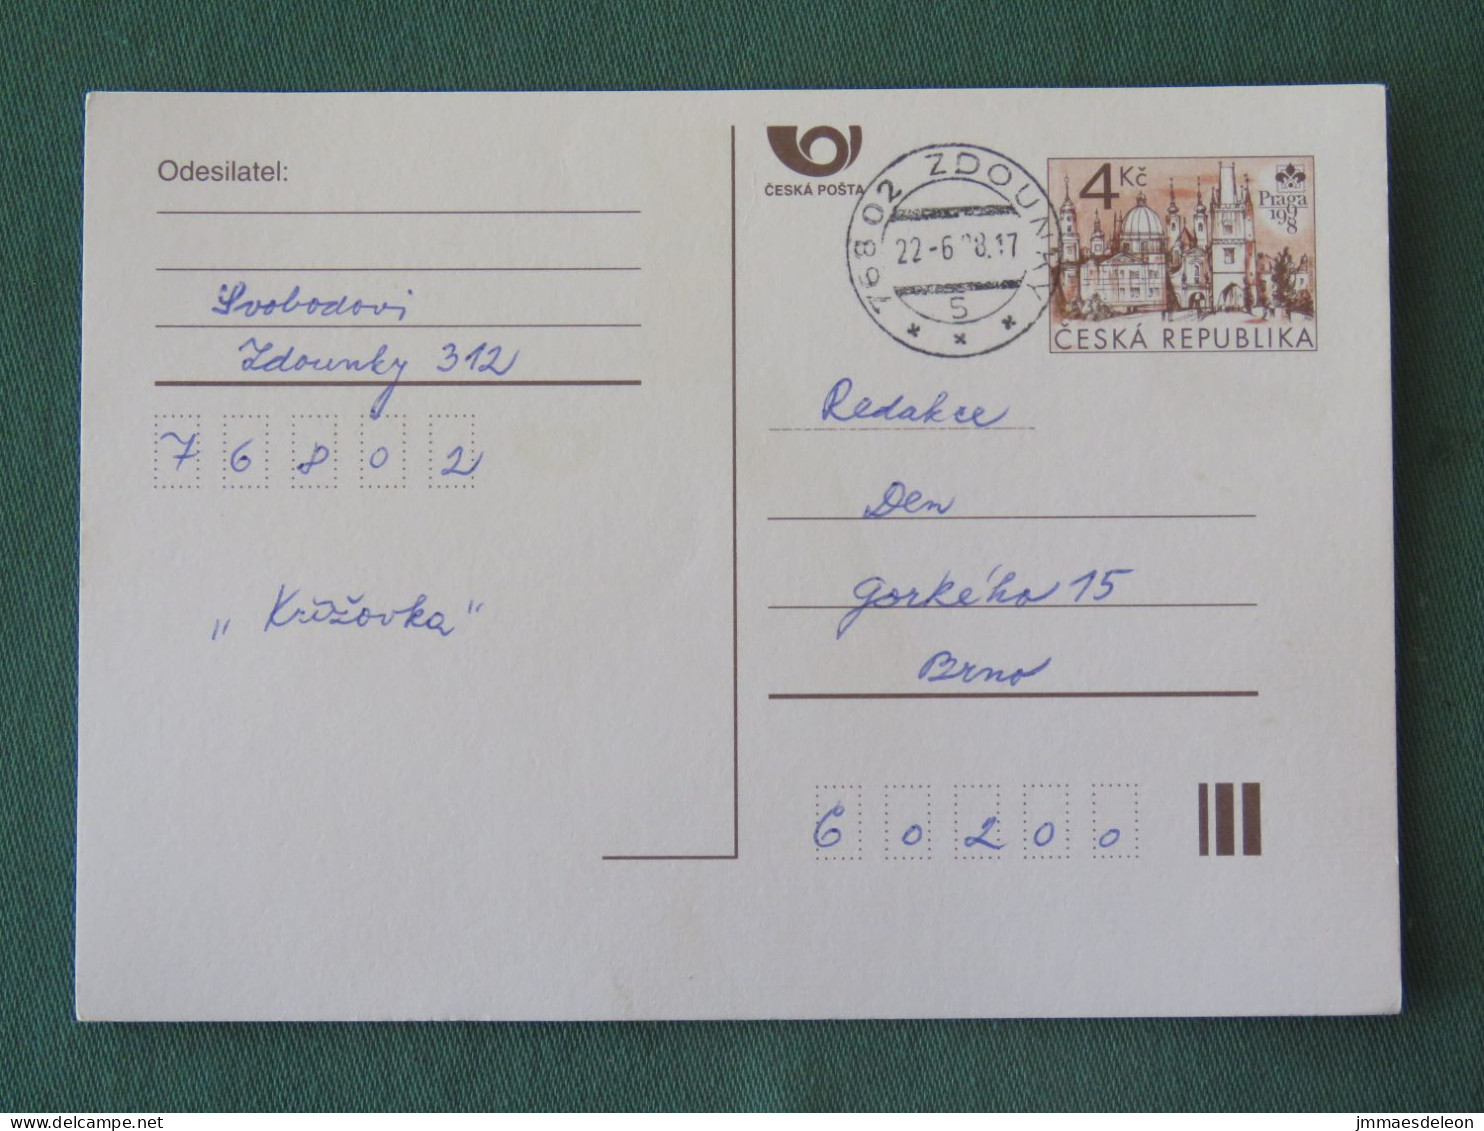 Odesilatel:
Svobodovi
Zdounky 312
76802
„Křížovka"
ČESKÁ POŠTA
76802 ZDOUNKY
22-6 98.17
5
4 Kč
Praga
1998
ČESKÁ REPUBLIKA
Redakce
Den
Gorkého 15
Brno
60200
jmmaesdeleon